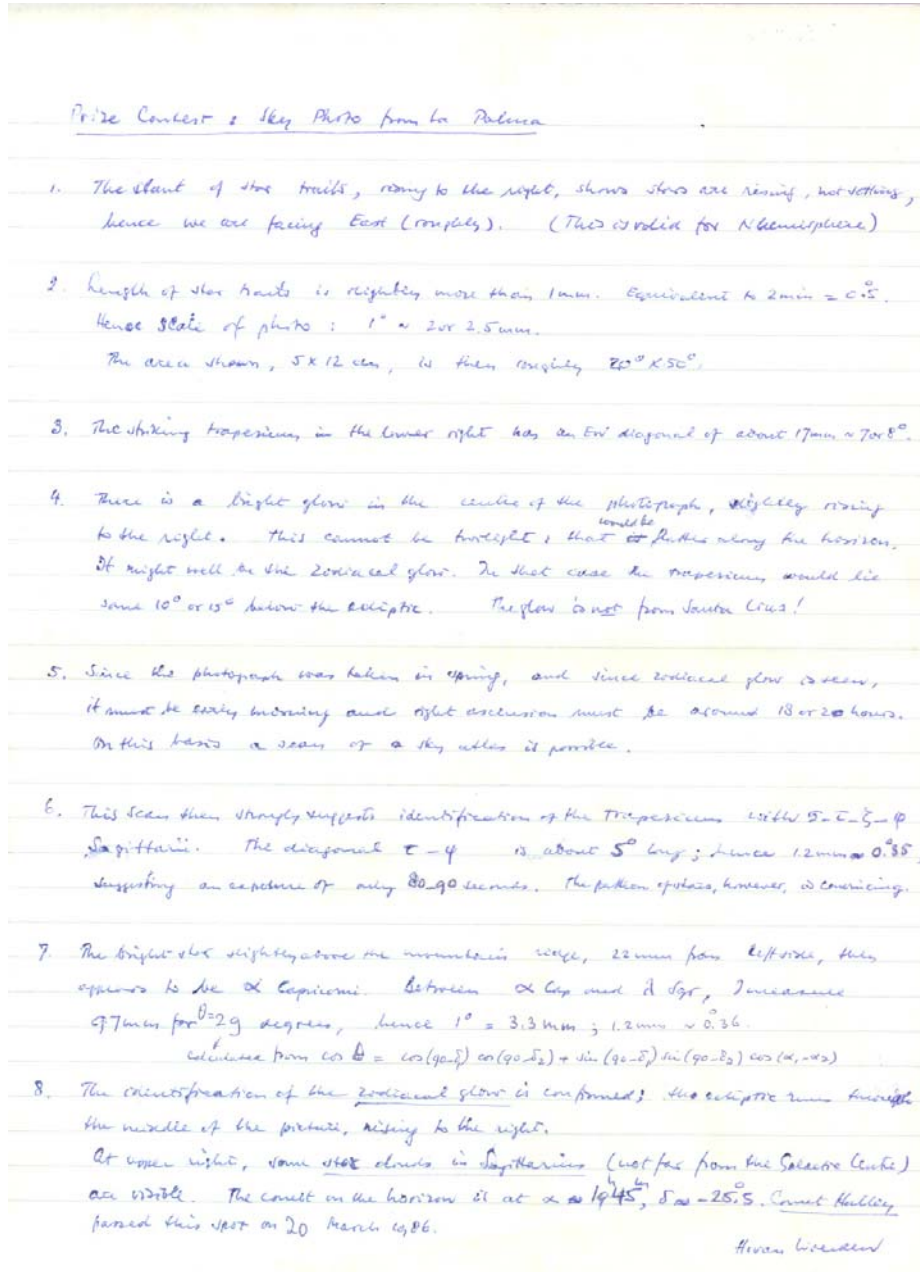 Prize Contest : Sky Photo from La Palma
1. The slant of star trails, rising to the right, shows stars are rising, not setting,
hence we are facing East (roughly). (This is valid for N hemisphere)
2. Length of star trails is slightly more than 1mm. Equivalent to 2min = 0.°5.
Hence scale of photo : 1° ~ 2 or 2.5 mm.
The area shown, 5 x 12 cm, is then roughly 20° x 50°.
3. The striking trapezium in the lower right has an diagonal of about 17mm ~ 7 or 8°.
4. There is a bright glow in the centre of the photograph, slightly rising
to the right. This cannot be twilight; that would be flatter along the horizon.
It might well be the zodiacal glow. In that case the trapezium would lie
some 10° or 15° below the ecliptic. The glow is not from Santa Cruz!
5. Since the photograph was taken in spring, and since zodiacal glow is seen,
it must be early morning and right ascension must be around 18 or 20 hours.
On this basis a scan of a sky atlas is possible.
6. This scan then strongly suggests identification of the Trapezium with σ-τ-ζ-φ
Sagittarii. The diagonal τ-φ is about 5° long; hence 1.2mm ≈ 0.°35,
suggesting an exposure of only 80-90 seconds. The pattern of stars, however, is convincing.
7. The bright star slightly above the mountain ridge, 22mm from left side, then
appears to be α Capricorni. Between α Cap and λ Sgr, I measure
97mm for θ=29 degrees, hence 1° = 3.3mm; 1.2mm ~ 0.°36.
calculated from cos θ = cos(90-δ₁) cos(90-δ₂) + sin(90-δ₁) sin(90-δ₂) cos(α₁-α₂)
8. The identification of the zodiacal glow is confirmed; the ecliptic runs through
the middle of the picture, rising to the right.
At upper right, some star clouds in Sagittarius (not far from the Galactic Centre)
are visible. The comet on the horizon is at α ≈ 19h45m, δ ≈ -25.°5. Comet Halley
passed this spot on 20 March 1986.